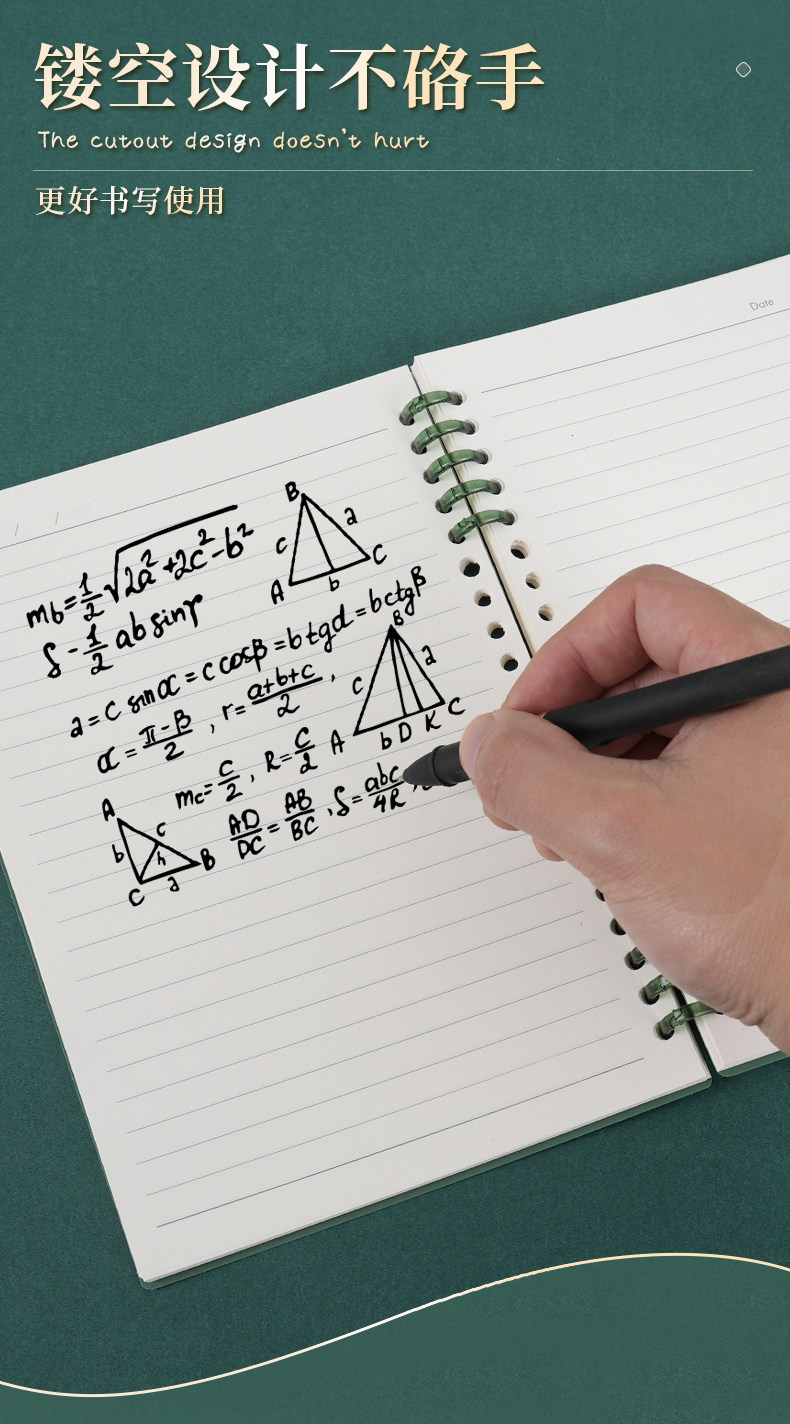 镂空设计不硌手
The cutout design doesn't hurt
更好书写使用
Date
/ /
m_b=1/2√2a²+2c²-b²
B
c a
A b C
S-1/2 ab sinγ
a=c sinα=c cosβ=b tgα=b ctgβ
α=π-β/2, r=a+b+c/2,
B
c a
A b D K C
m_c=c/2, R=c/2
AD/DC=AB/BC, S=abc/4R,
A
b c h B
C a